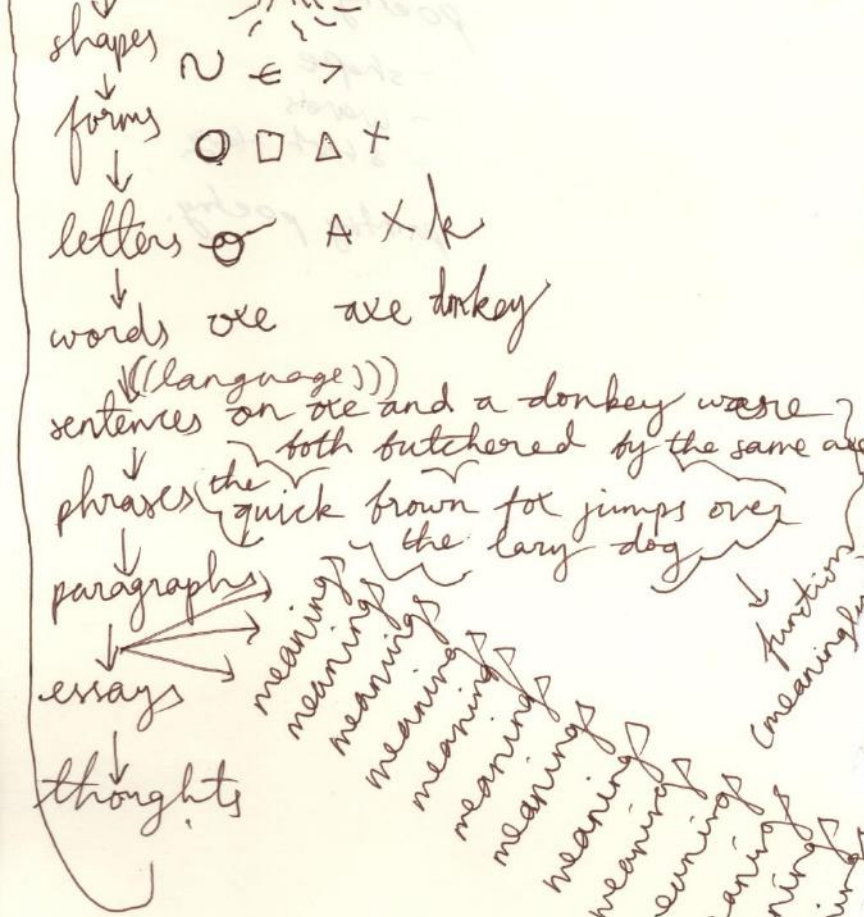 shapes ~ € >
forms O □ △ +
letters o A X k
words oxe axe donkey
((language)))
sentences on oxe and a donkey were
both butchered by the same axe
phrases the
quick brown fox jumps over
the lazy dog
function
paragraphs
meanings
meanings
meanings
meaning
meaning
meaning
meaning
meaning
meaning
meaning
essays
thoughts